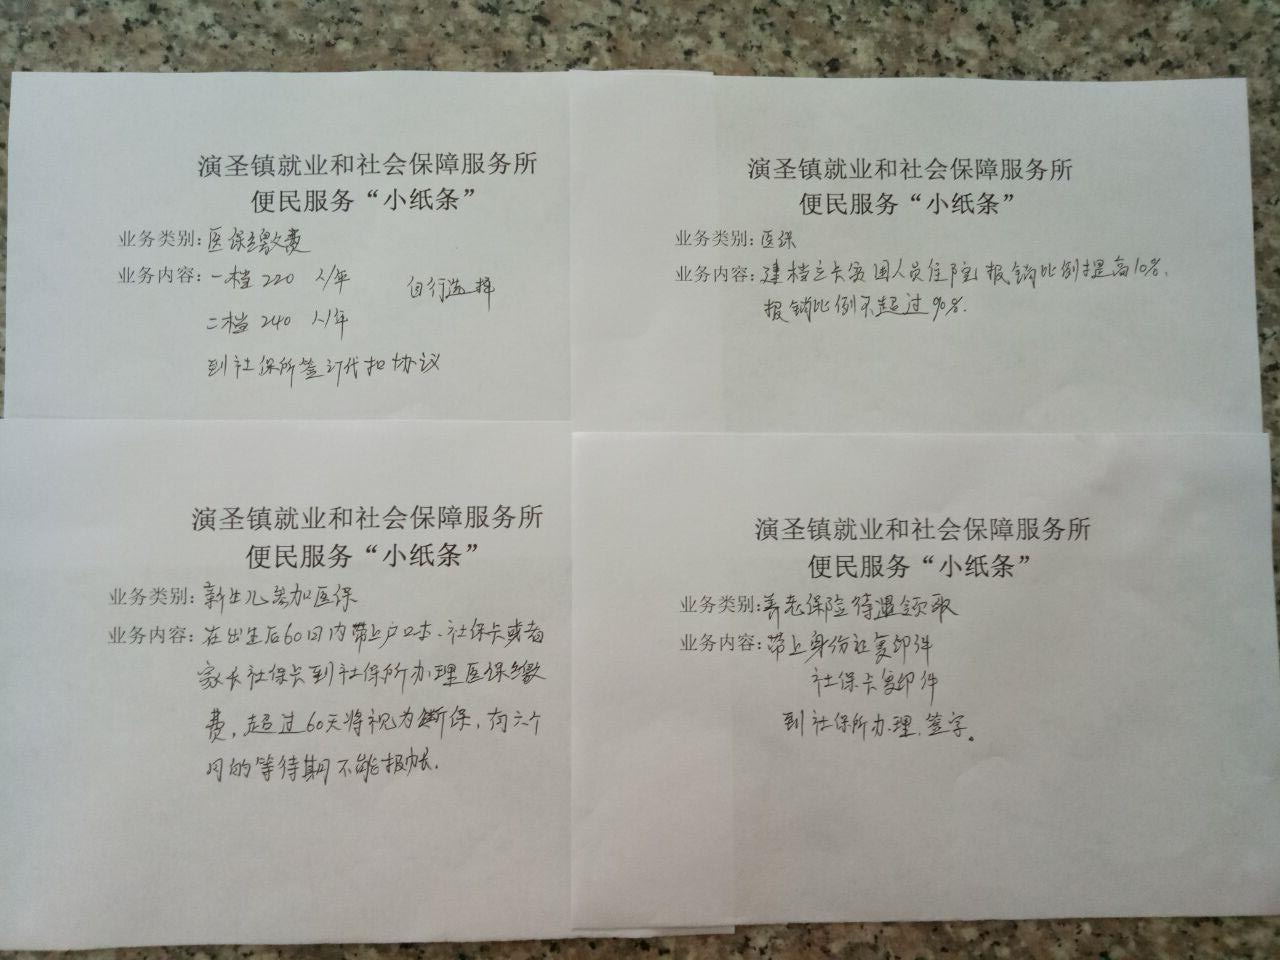 演圣镇就业和社会保障服务所
便民服务“小纸条”
业务类别:医保缴费
业务内容:一档 220 人/年 自行选择
二档 240 人/年
到社保所签订代扣协议
演圣镇就业和社会保障服务所
便民服务“小纸条”
业务类别:医保
业务内容:建档立卡贫困人员住院报销比例提高10%,
报销比例不超过90%.
演圣镇就业和社会保障服务所
便民服务“小纸条”
业务类别:新生儿参加医保
业务内容:在出生后60日内带上户口本、社保卡或者
家长社保卡到社保所办理医保缴
费,超过60天将视为断保,有六个
月的等待期不能报帐.
演圣镇就业和社会保障服务所
便民服务“小纸条”
业务类别:养老保险待遇领取
业务内容:带上身份证复印件
社保卡复印件
到社保所办理.签字。